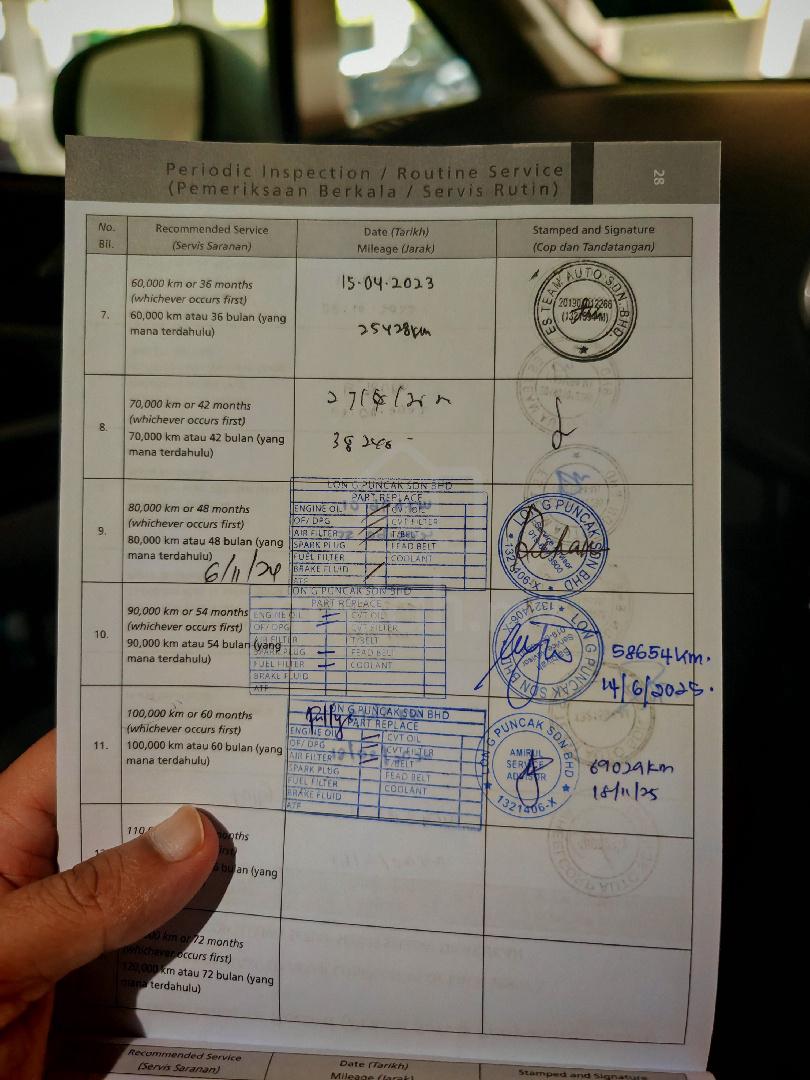 Periodic Inspection / Routine Service
(Pemeriksaan Berkala / Servis Rutin)
28
No.
Bil.
Recommended Service
(Servis Saranan)
Date (Tarikh)
Mileage (Jarak)
Stamped and Signature
(Cop dan Tandatangan)
7.
60,000 km or 36 months
(whichever occurs first)
60,000 km atau 36 bulan (yang
mana terdahulu)
15.04.2023
25428km
ES TEAM AUTO SDN. BHD
8.
70,000 km or 42 months
(whichever occurs first)
70,000 km atau 42 bulan (yang
mana terdahulu)
9.
80,000 km or 48 months
(whichever occurs first)
80,000 km atau 48 bulan (yang
mana terdahulu)
6/11/24
LONG PUNCAK SDN BHD
PART REPLACE
ENGINE OIL CVT OIL
OF/ DPG CVT FILTER
AIR FILTER T/BELT
SPARK PLUG FEAD BELT
FUEL FILTER COOLANT
BRAKE FLUID
ATF
LONG PUNCAK SDN BHD
1321406-X
10.
90,000 km or 54 months
(whichever occurs first)
90,000 km atau 54 bulan (yang
mana terdahulu)
LONG PUNCAK SDN BHD
PART REPLACE
ENGINE OIL CVT OIL
OF/ DPG CVT FILTER
AIR FILTER T/BELT
SPARK PLUG FEAD BELT
FUEL FILTER COOLANT
BRAKE FLUID
ATF
LONG PUNCAK SDN BHD
58654km.
14/6/2025.
11.
100,000 km or 60 months
(whichever occurs first)
100,000 km atau 60 bulan (yang
mana terdahulu)
LONG PUNCAK SDN BHD
PART REPLACE
ENGINE OIL CVT OIL
OF/ DPG CVT FILTER
AIR FILTER T/BELT
SPARK PLUG FEAD BELT
FUEL FILTER COOLANT
BRAKE FLUID
ATF
LONG PUNCAK SDN BHD
AMIRUL
SERVICE
ADVISOR
1321406-X
69029km
18/11/25
months
bulan (yang
km or 72 months
(whichever occurs first)
120,000 km atau 72 bulan (yang
mana terdahulu)
Recommended Service
(Servis Saranan)
Date (Tarikh)
Mileage (Jarak)
Stamped and Signature